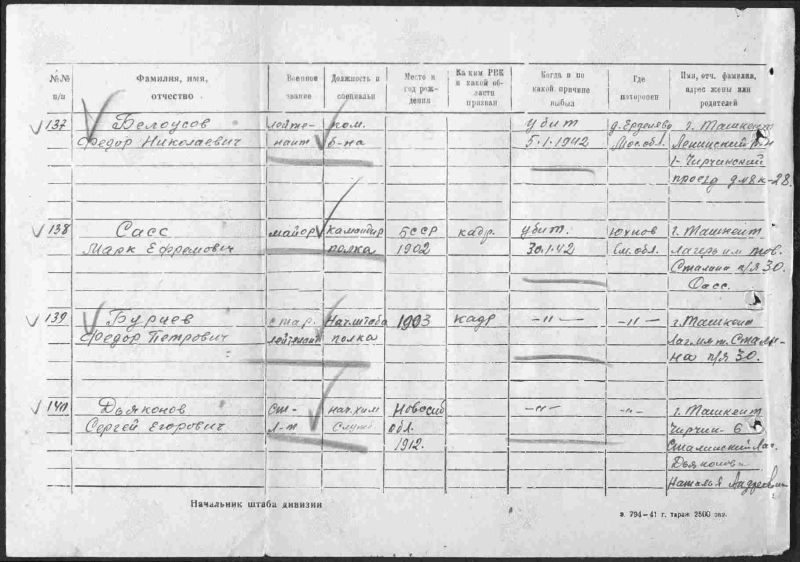 №№ п/п
Фамилия, имя, отчество
Военное звание
Должность и специальн
Место и год рождения
Каким РВК и какой области призван
Когда и по какой причине выбыл
Где похоронен
Имя, отч. фамилия, адрес жены или родителей
137 Белоусов лейте- пом. убит д. Ерденево г. Ташкент
Федор Николаевич нант б-на 5.1.1942 Мос.обл. Ленинский р-н
1-Чирчикский
проезд д №8 к-28.
138 Сасс майор командир БССР кадр. убит. Юхнов г. Ташкент
Марк Ефремович полка 1902 30.1.42 См.обл. Лагерь им тов.
Сталина п/я 30.
Сасс.
139 Буриев стар. Нач.штаба 1903 кадр -"- -"- г. Ташкент
Федор Петрович лейтенант полка Лаг.им т. Стали-
на п/я 30.
140 Дьяконов ст- нач.хим Новосиб -"- -"- г. Ташкент
Сергей Егорович л-т служб обл. Чирчик-6
1912. Сталинский Лаг.
Дьяконова
Наталья Андреевн
Начальник штаба дивизии
з. 794—41 г. тираж 2500 экз.